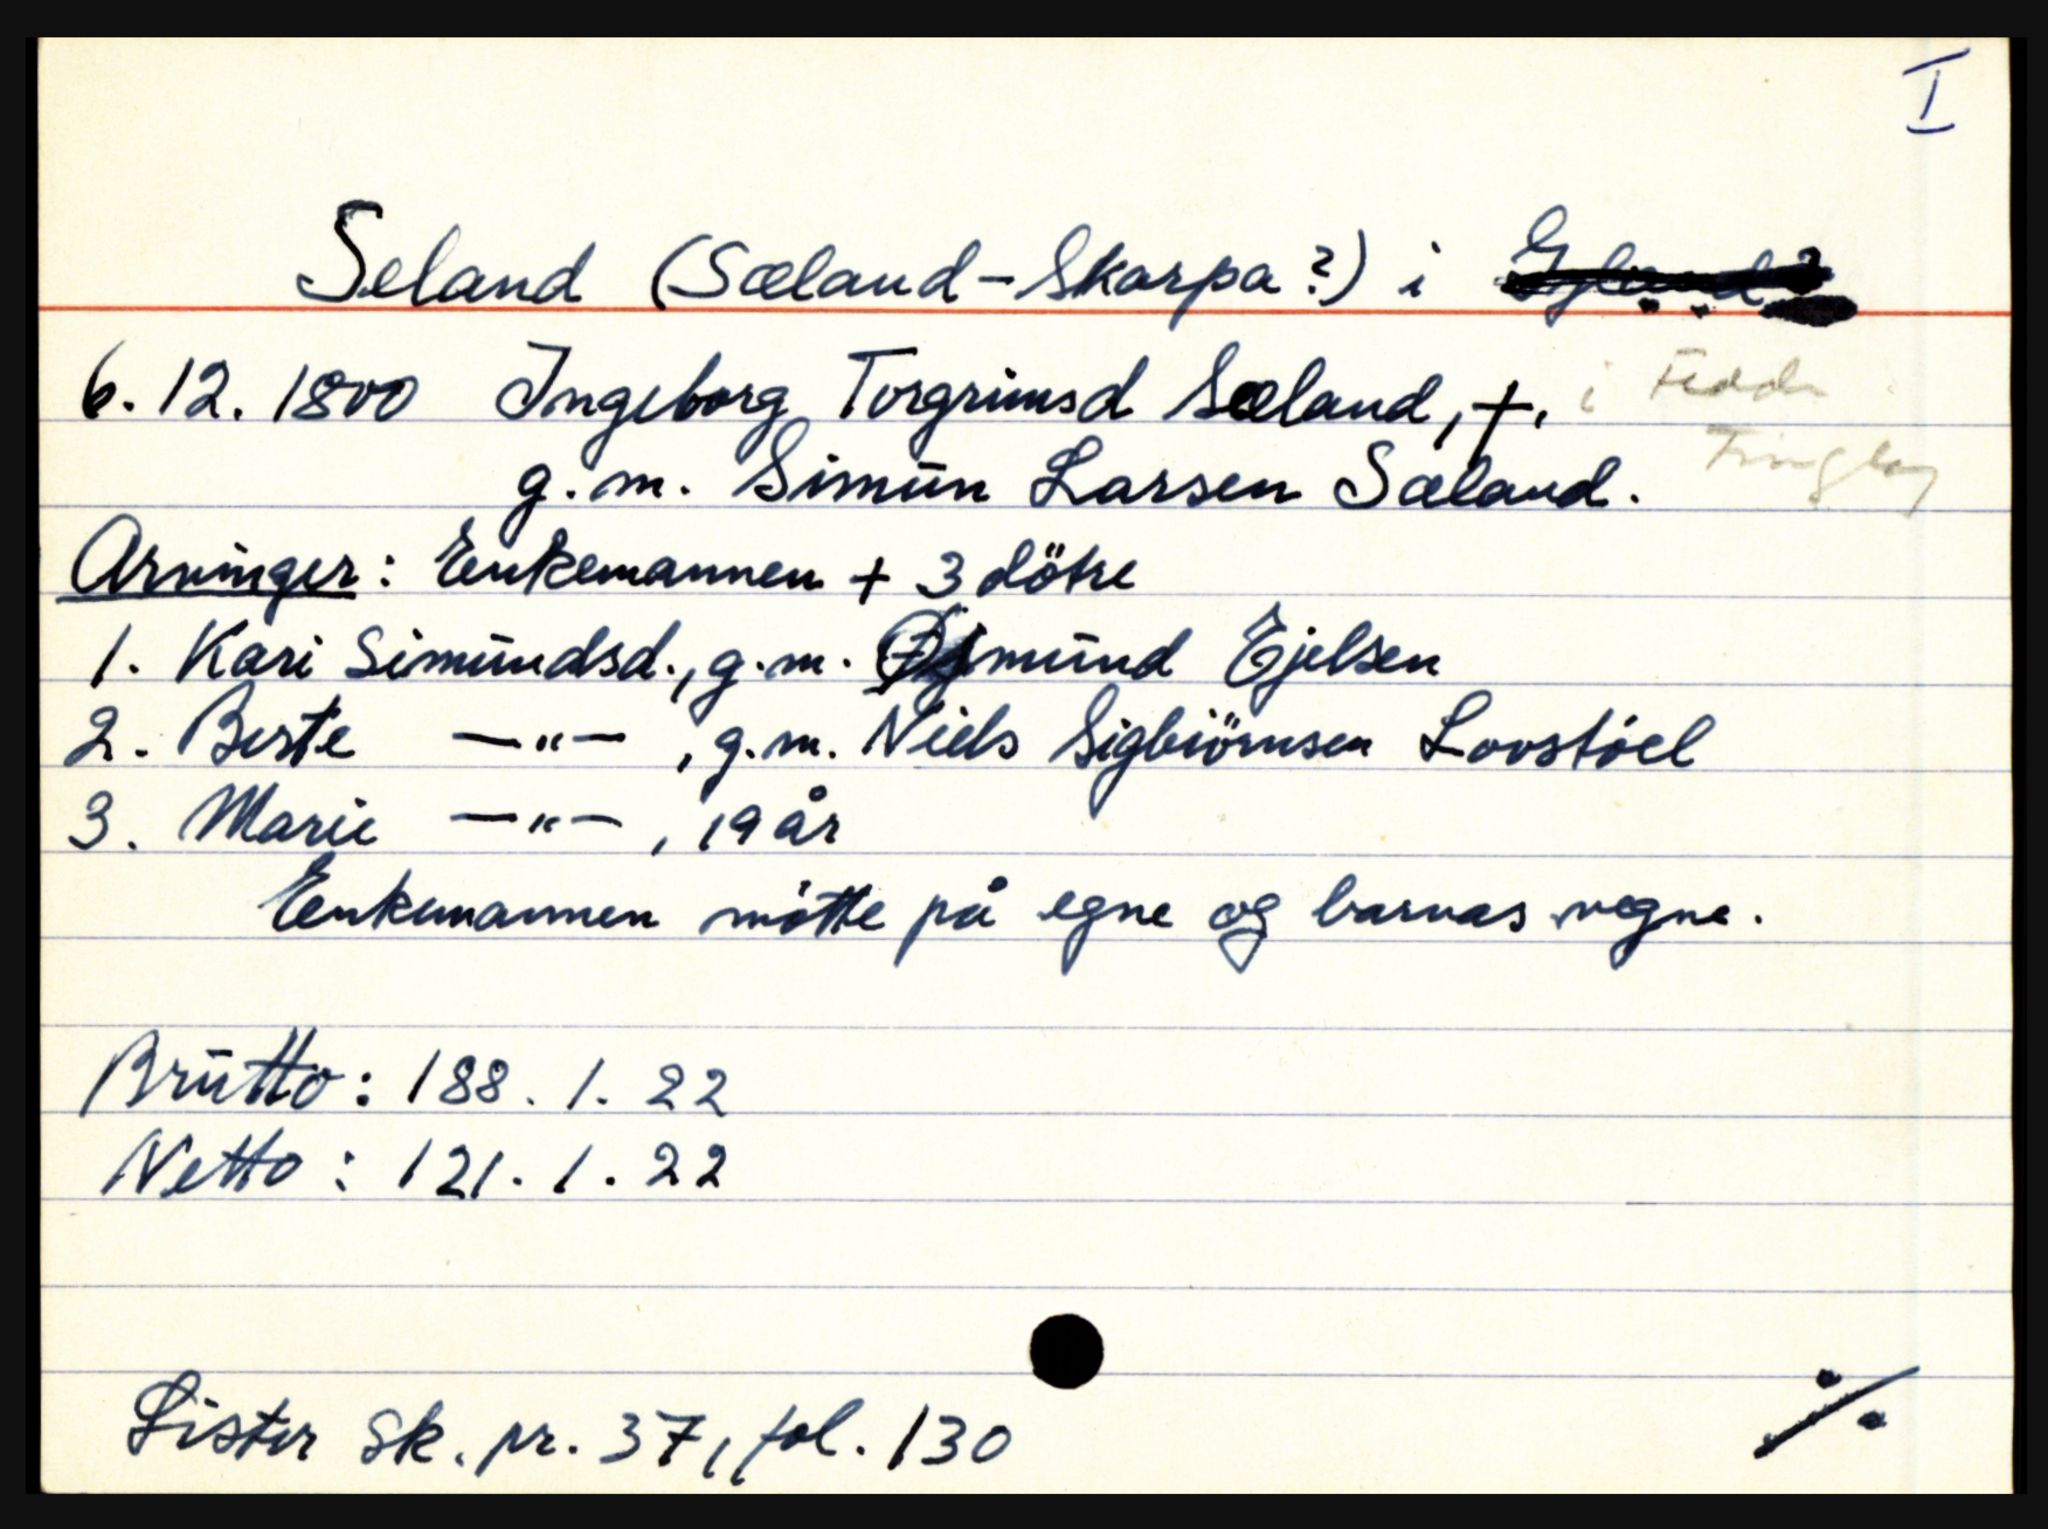 I
Seland (Sæland-Skarpa?) i Gyland?
6.12.1800 Ingeborg Torgrimsd Sæland, +. i Fedda
Tinglag
g.m. Simün Larsen Sæland.
Arvinger: Enkemannen + 3 dötre
1. Kari Simündsd., g.m. Osmünd Ejelsen
2. Berte —"— , g.m. Niels Sigbiörnsen Lovstóel
3. Marie —"— , 19 år
Enkemannen mötte på egne og barnas vegne.
Brütto: 188. 1. 22
Netto: 121. 1. 22
Lister sk. pr. 37, fol. 130
·/·